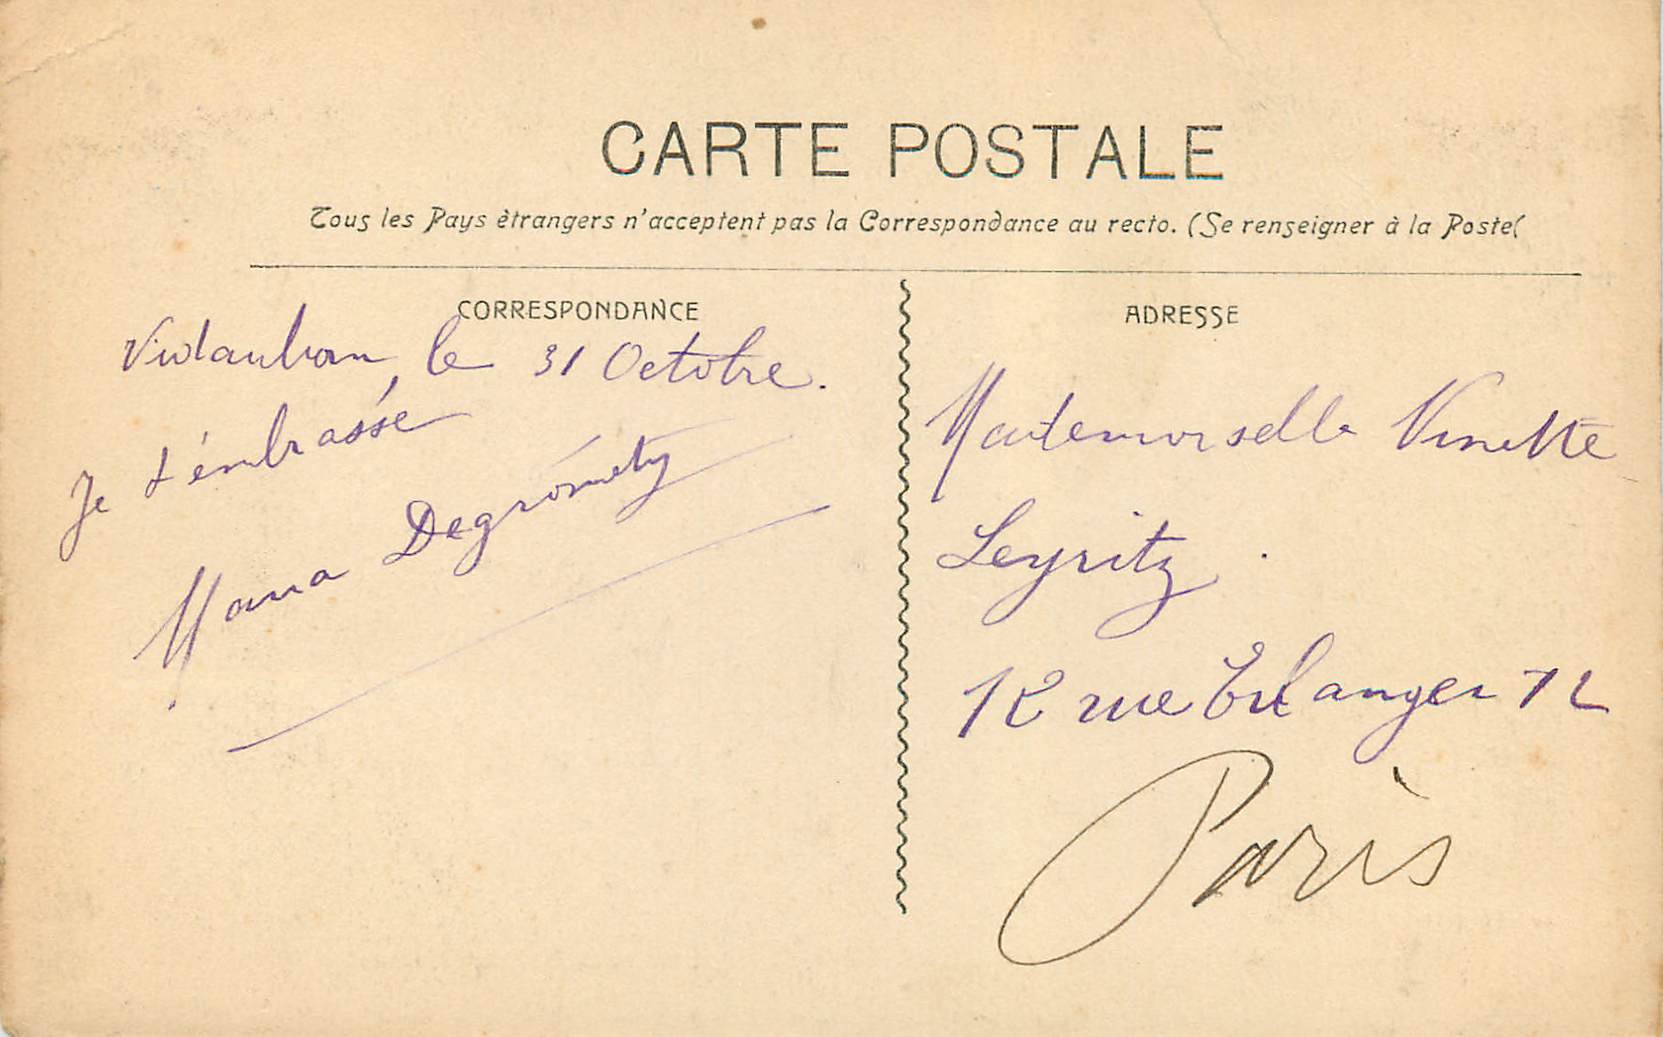 CARTE POSTALE
Tous les Pays ètrangers n'acceptent pas la Correspondance au recto. (Se renseigner à la Poste(
CORRESPONDANCE
Vidauban, le 31 Octobre.
Je t'embrasse
Maria Degrómety
ADRESSE
Mademoiselle Ninette
Leyritz.
12 rue Erlanger 12
Paris